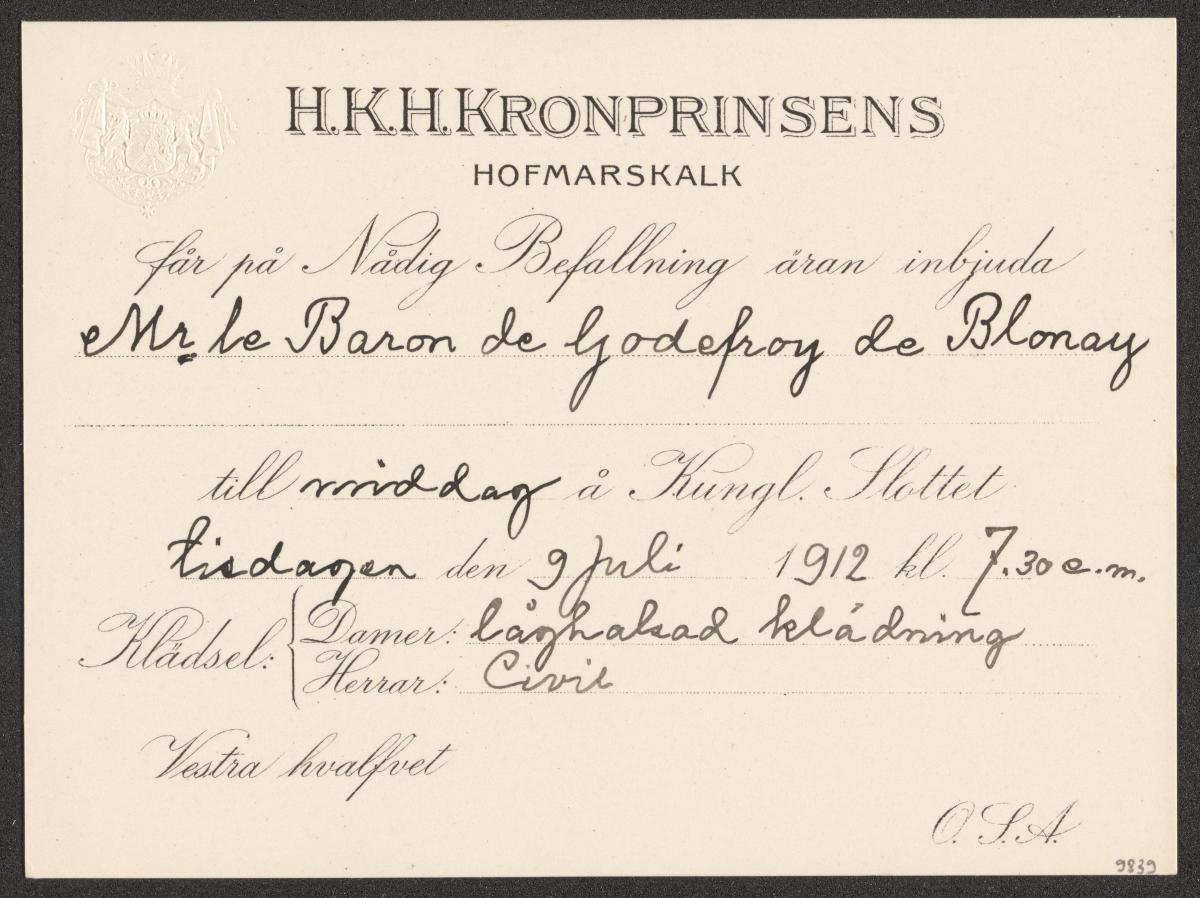 H.K.H. KRONPRINSENS
HOFMARSKALK
får på Nådig Befallning äran inbjuda
Mr. le Baron de Godefroy de Blonay
till middag å Kungl. Slottet
tisdagen den 9 juli 1912 kl. 7.30 e.m.
Klädsel: { Damer: låghalsad klädning
Herrar: Civil
Vestra hvalfvet
O.S.A.
9839